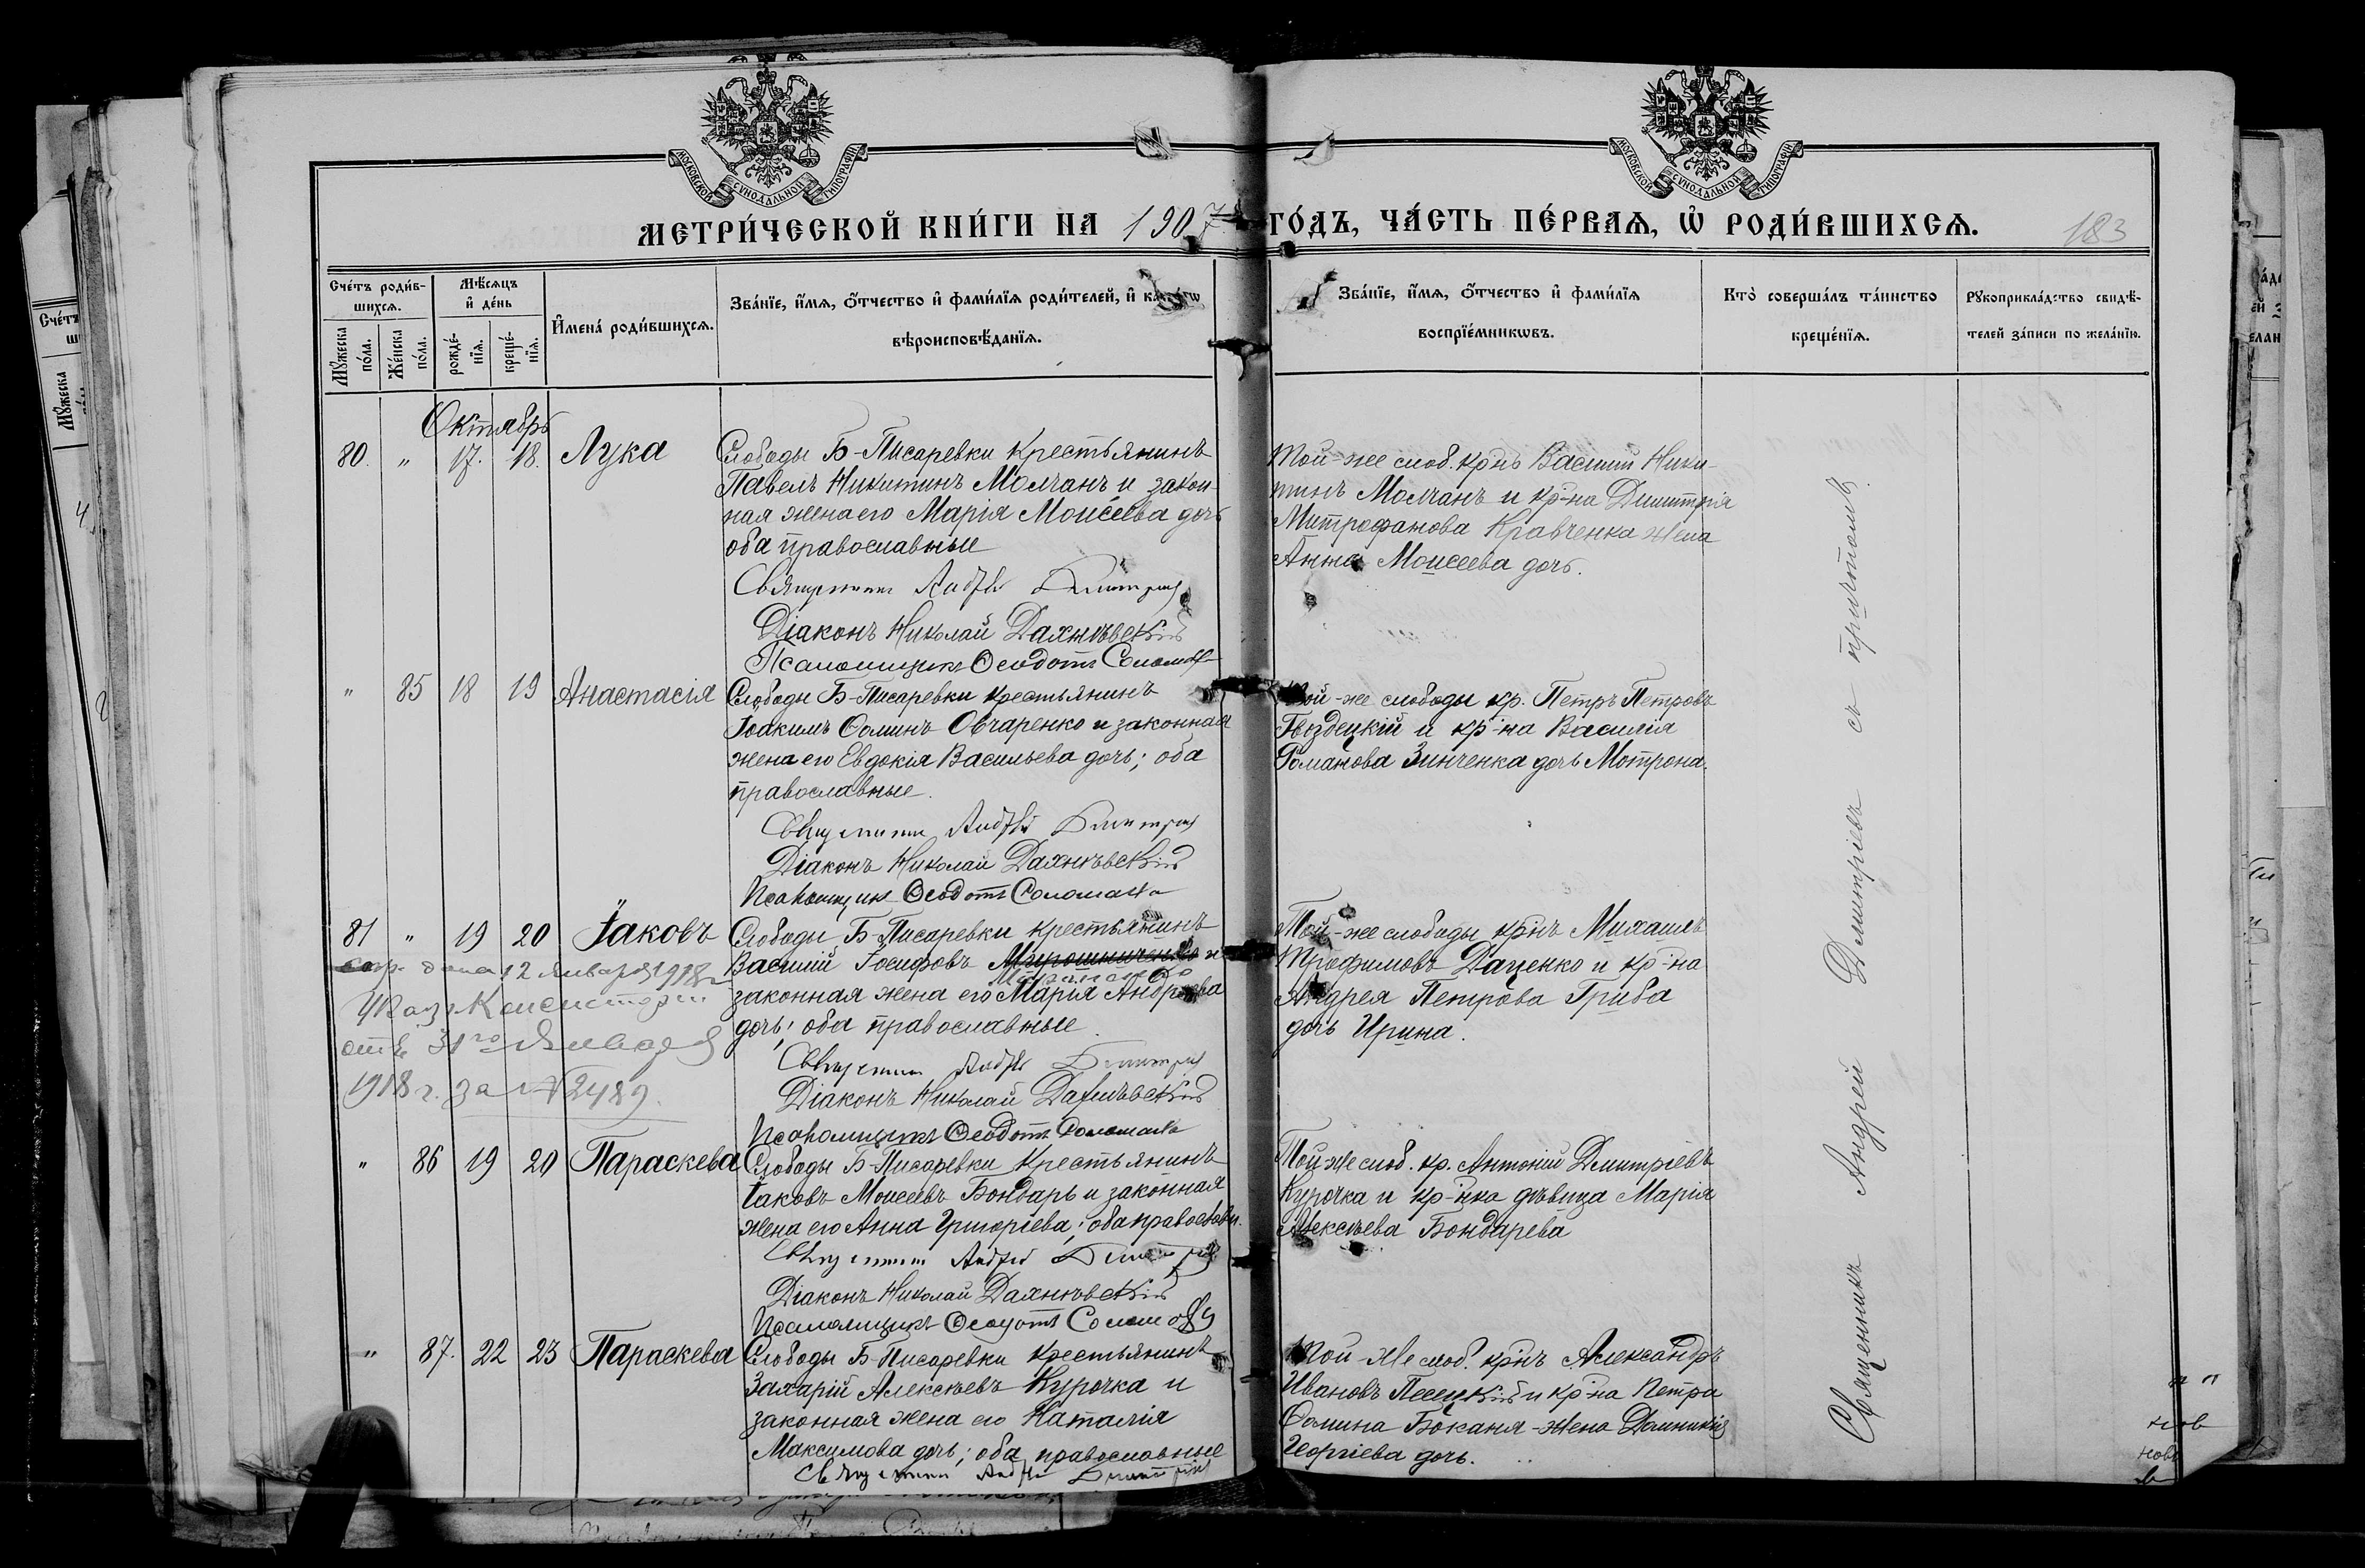 МОСКОВСКОЙ СѴНОДАЛЬНОЙ ТИПОГРАФІИ
МОСКОВСКОЙ СѴНОДАЛЬНОЙ ТИПОГРАФІИ
МЕТРИ́ЧЕСКОЙ КНИ́ГИ НА 1907 ГО́ДЪ, ЧА́СТЬ ПЕ́РВАѦ, Ѽ РОДИ́ВШИХСѦ.
183
Сче́тъ роди́в-
шихсѧ.
Мꙋ́жеска по́ла.
Же́нска по́ла.
Мѣ́сѧцъ
и҆ де́нь
рожде́-
нїѧ.
креще́-
нїѧ.
И҆мена́ роди́вшихсѧ.
Зва́нїе, и҆́мѧ, ѻ҆́тчество и҆ фами́лїѧ роди́телей, и҆
вѣроисповѣ́данїѧ.
Зва́нїе, и҆́мѧ, ѻ҆́тчество и҆ фами́лїѧ
воспрїе́мникѡвъ.
Кто̀ соверша́лъ та́инство
креще́нїѧ.
Рꙋкоприкла́дство свидѣ́-
телей за́писи по жела́нїю.
Октябрь
80. " 17. 18. Лука
Слободы Б-Писаревки крестьянинъ
Павелъ Никитинъ Молчанъ и закон-
ная жена его Марія Моисеева дочь
оба православные
Священникъ Андрей Димитріевъ
Діаконъ Николай Дахнѣвскій
Псаломщикъ Ѳеодотъ Соломаха
Той-же слоб. кр-нъ Василій Ники-
тинъ Молчанъ и кр-на Димитрія
Митрофанова Кравченка жена
Анна Моисеева дочь.
" 85 18 19 Анастасія
Слободы Б-Писаревки крестьянинъ
Іоакимъ Ѳоминъ Овчаренко и законная
жена его Евдокія Васильева дочь; оба
православные.
Священникъ Андрей Димитріевъ
Діаконъ Николай Дахнѣвскій
Псаломщикъ Ѳеодотъ Соломаха
Той-же слободы кр. Петръ Петровъ
Гвоздецкій и кр-на Василія
Романова Зинченка дочь Мотрона.
81 " 19 20 Іаковъ
Слободы Б-Писаревки крестьянинъ
Василій Іосифовъ и
законная жена его Марія Андреева
дочь; оба православные.
Священникъ Андрей Димитріевъ
Діаконъ Николай Дахнѣвскій
Псаломщикъ Ѳеодотъ Соломаха
дана 12 января 1918 г
Указ. Консисторіи
отъ 31го Января
1918 г. за № 2489.
Той-же слободы кр-нъ Михаилъ
Трофимовъ Даценко и кр-на
Андрея Петрова Гриба
дочь Ирина.
" 86 19 20 Параскева
Слободы Б-Писаревки крестьянинъ
Іаковъ Моисеевъ Бондарь и законная
жена его Анна Григоріева; оба православн.
Священникъ Андрей Димитріевъ
Діаконъ Николай Дахнѣвскій
Псаломщикъ Ѳеодотъ Соломаха
Той-же слоб. кр. Антоній Дмитріевъ
Курочка и кр-нка дѣвица Марія
Алексѣева Бондарева
" 87. 22 23 Параскева
Слободы Б-Писаревки крестьянинъ
Захарій Алексѣевъ Курочка и
законная жена его Наталія
Максимова дочь; оба православные
Священникъ Андрей Димитріевъ
Той-же слоб. кр-нъ Александръ
Ивановъ и кр-на Петра
Ѳомина Боканя-жена Домникія
Георгіева дочь.
Священникъ Андрей Димитріевъ съ причтомъ.